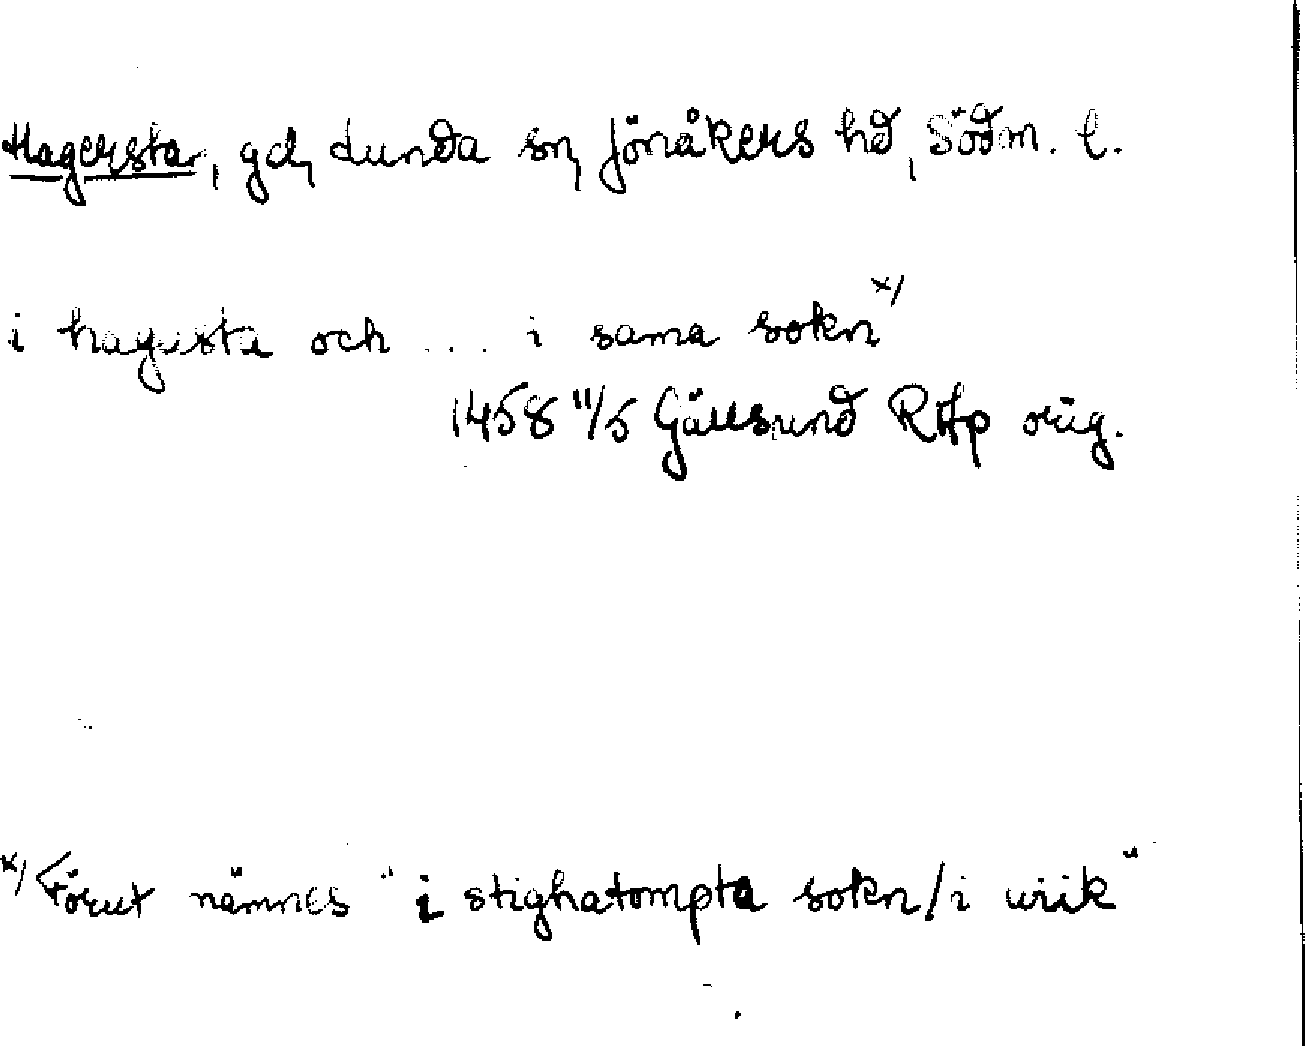 Hagersta, gd, Lunda sn, Jönåkers hd, Södm. l.
i hagersta och ... i sama sokn x)
1458 11/5 Gällsund RAp orig.
x) Förut nämnes "i stighatompta sokn / i wiik"